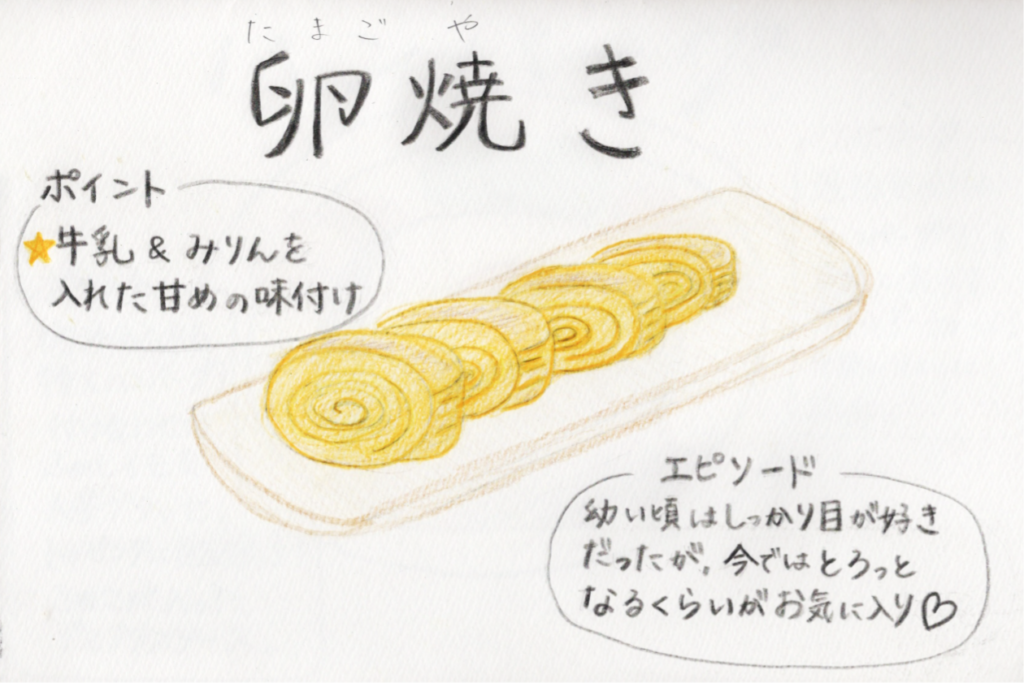 たまごや
卵焼き
ポイント
★牛乳&みりんを
入れた甘めの味付け
エピソード
幼い頃はしっかり目が好き
だったが、今ではとろっと
なるくらいがお気に入り♡